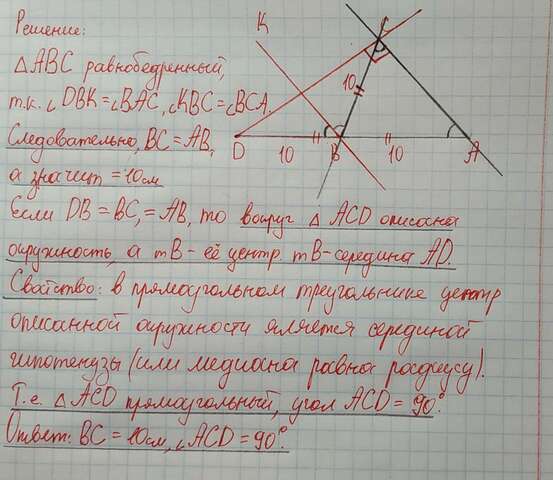 Решение:
△ABC равнобедренный,
т.к. ∠DBK = ∠BAC, ∠KBC = ∠BCA.
Следовательно, BC = AB,
а значит = 10см
Если DB = BC, = AB, то вокруг △ ACD описана
окружность, а тB - её центр. тB-середина AD.
Свойство: в прямоугольном треугольнике центр
описанной окружности является серединой
гипотенузы (или медиана равна радиусу).
Т.е. △ACD прямоугольный, угол ACD = 90°.
Ответ: BC = 10см, ∠ACD = 90°.
K
C
10
D
10
B
10
A